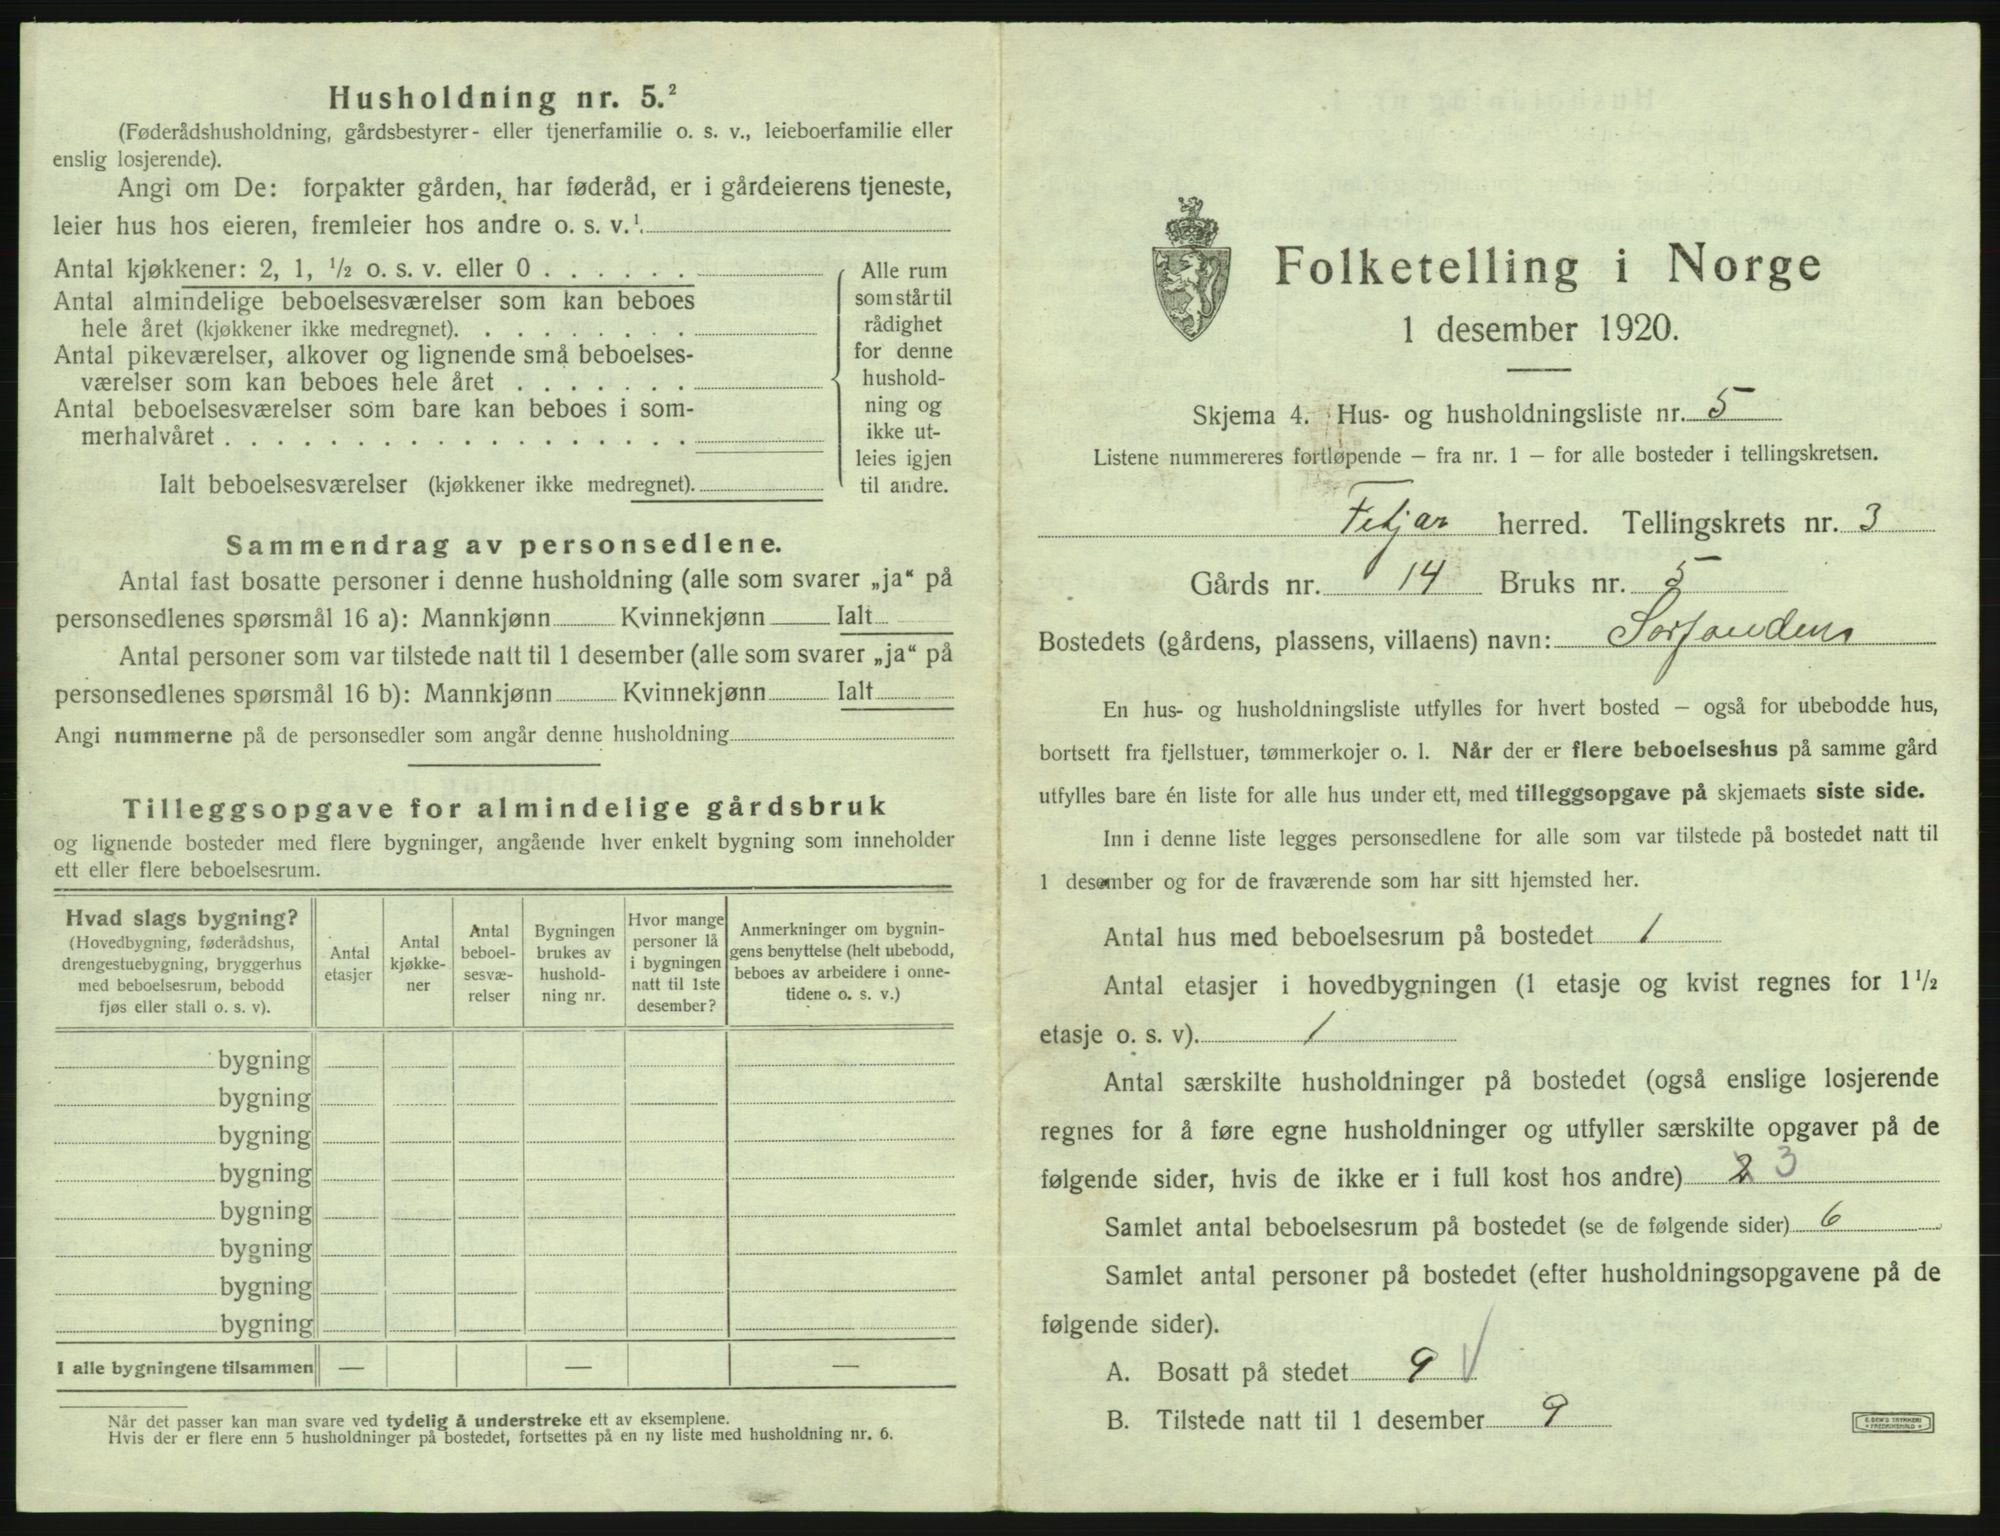 Husholdning nr. 5.²
(Føderådshusholdning, gårdsbestyrer- eller tjenerfamilie o. s. v., leieboerfamilie eller
enslig losjerende).
Angi om De: forpakter gården, har føderåd, er i gårdeierens tjeneste,
leier hus hos eieren, fremleier hos andre o. s. v.¹
Antal kjøkkener: 2, 1, ½ o. s. v. eller 0 . . . . . .
Antal almindelige beboelsesværelser som kan beboes
hele året (kjøkkener ikke medregnet). . . . . . . . .
Antal pikeværelser, alkover og lignende små beboelses-
værelser som kan beboes hele året . . . . . . .
Antal beboelsesværelser som bare kan beboes i som-
merhalvåret . . . . . . . . . . . . . . . . . .
Ialt beboelsesværelser (kjøkkener ikke medregnet).
Alle rum
som står til
rådighet
for denne
hushold-
ning og
ikke ut-
leies igjen
til andre.
Sammendrag av personsedlene.
Antal fast bosatte personer i denne husholdning (alle som svarer „ja“ på
personsedlenes spørsmål 16 a): Mannkjønn Kvinnekjønn Ialt
Antal personer som var tilstede natt til 1 desember (alle som svarer „ja“ på
personsedlenes spørsmål 16 b): Mannkjønn Kvinnekjønn Ialt
Angi nummerne på de personsedler som angår denne husholdning
Tilleggsopgave for almindelige gårdsbruk
og lignende bosteder med flere bygninger, angående hver enkelt bygning som inneholder
ett eller flere beboelsesrum.
Hvad slags bygning?
(Hovedbygning, føderådshus,
drengestuebygning, bryggerhus
med beboelsesrum, bebodd
fjøs eller stall o. s. v).
Antal
etasjer
Antal
kjøkke-
ner
Antal
beboel-
sesvæ-
relser
Bygningen
brukes av
hushold-
ning nr.
Hvor mange
personer lå
i bygningen
natt til 1ste
desember?
Anmerkninger om bygnin-
gens benyttelse (helt ubebodd,
beboes av arbeidere i onne-
tidene o. s. v.)
bygning
bygning
bygning
bygning
bygning
bygning
bygning
bygning
I alle bygningene tilsammen — — —
Når det passer kan man svare ved tydelig å understreke ett av eksemplene.
Hvis der er flere enn 5 husholdninger på bostedet, fortsettes på en ny liste med husholdning nr. 6.
Folketelling i Norge
1 desember 1920.
Skjema 4. Hus- og husholdningsliste nr. 5
Listene nummereres fortløpende – fra nr. 1 – for alle bosteder i tellingskretsen.
Fitjar herred. Tellingskrets nr. 3
Gårds nr. 14 Bruks nr. 5
Bostedets (gårdens, plassens, villaens) navn:
En hus- og husholdningsliste utfylles for hvert bosted – også for ubebodde hus,
bortsett fra fjellstuer, tømmerkojer o. l. Når der er flere beboelseshus på samme gård
utfylles bare én liste for alle hus under ett, med tilleggsopgave på skjemaets siste side.
Inn i denne liste legges personsedlene for alle som var tilstede på bostedet natt til
1 desember og for de fraværende som har sitt hjemsted her.
Antal hus med beboelsesrum på bostedet 1
Antal etasjer i hovedbygningen (1 etasje og kvist regnes for 1½
etasje o. s. v). 1
Antal særskilte husholdninger på bostedet (også enslige losjerende
regnes for å føre egne husholdninger og utfyller særskilte opgaver på de
følgende sider, hvis de ikke er i full kost hos andre) 2 3
Samlet antal beboelsesrum på bostedet (se de følgende sider) 6
Samlet antal personer på bostedet (efter husholdningsopgavene på de
følgende sider).
A. Bosatt på stedet 9
B. Tilstede natt til 1 desember 9